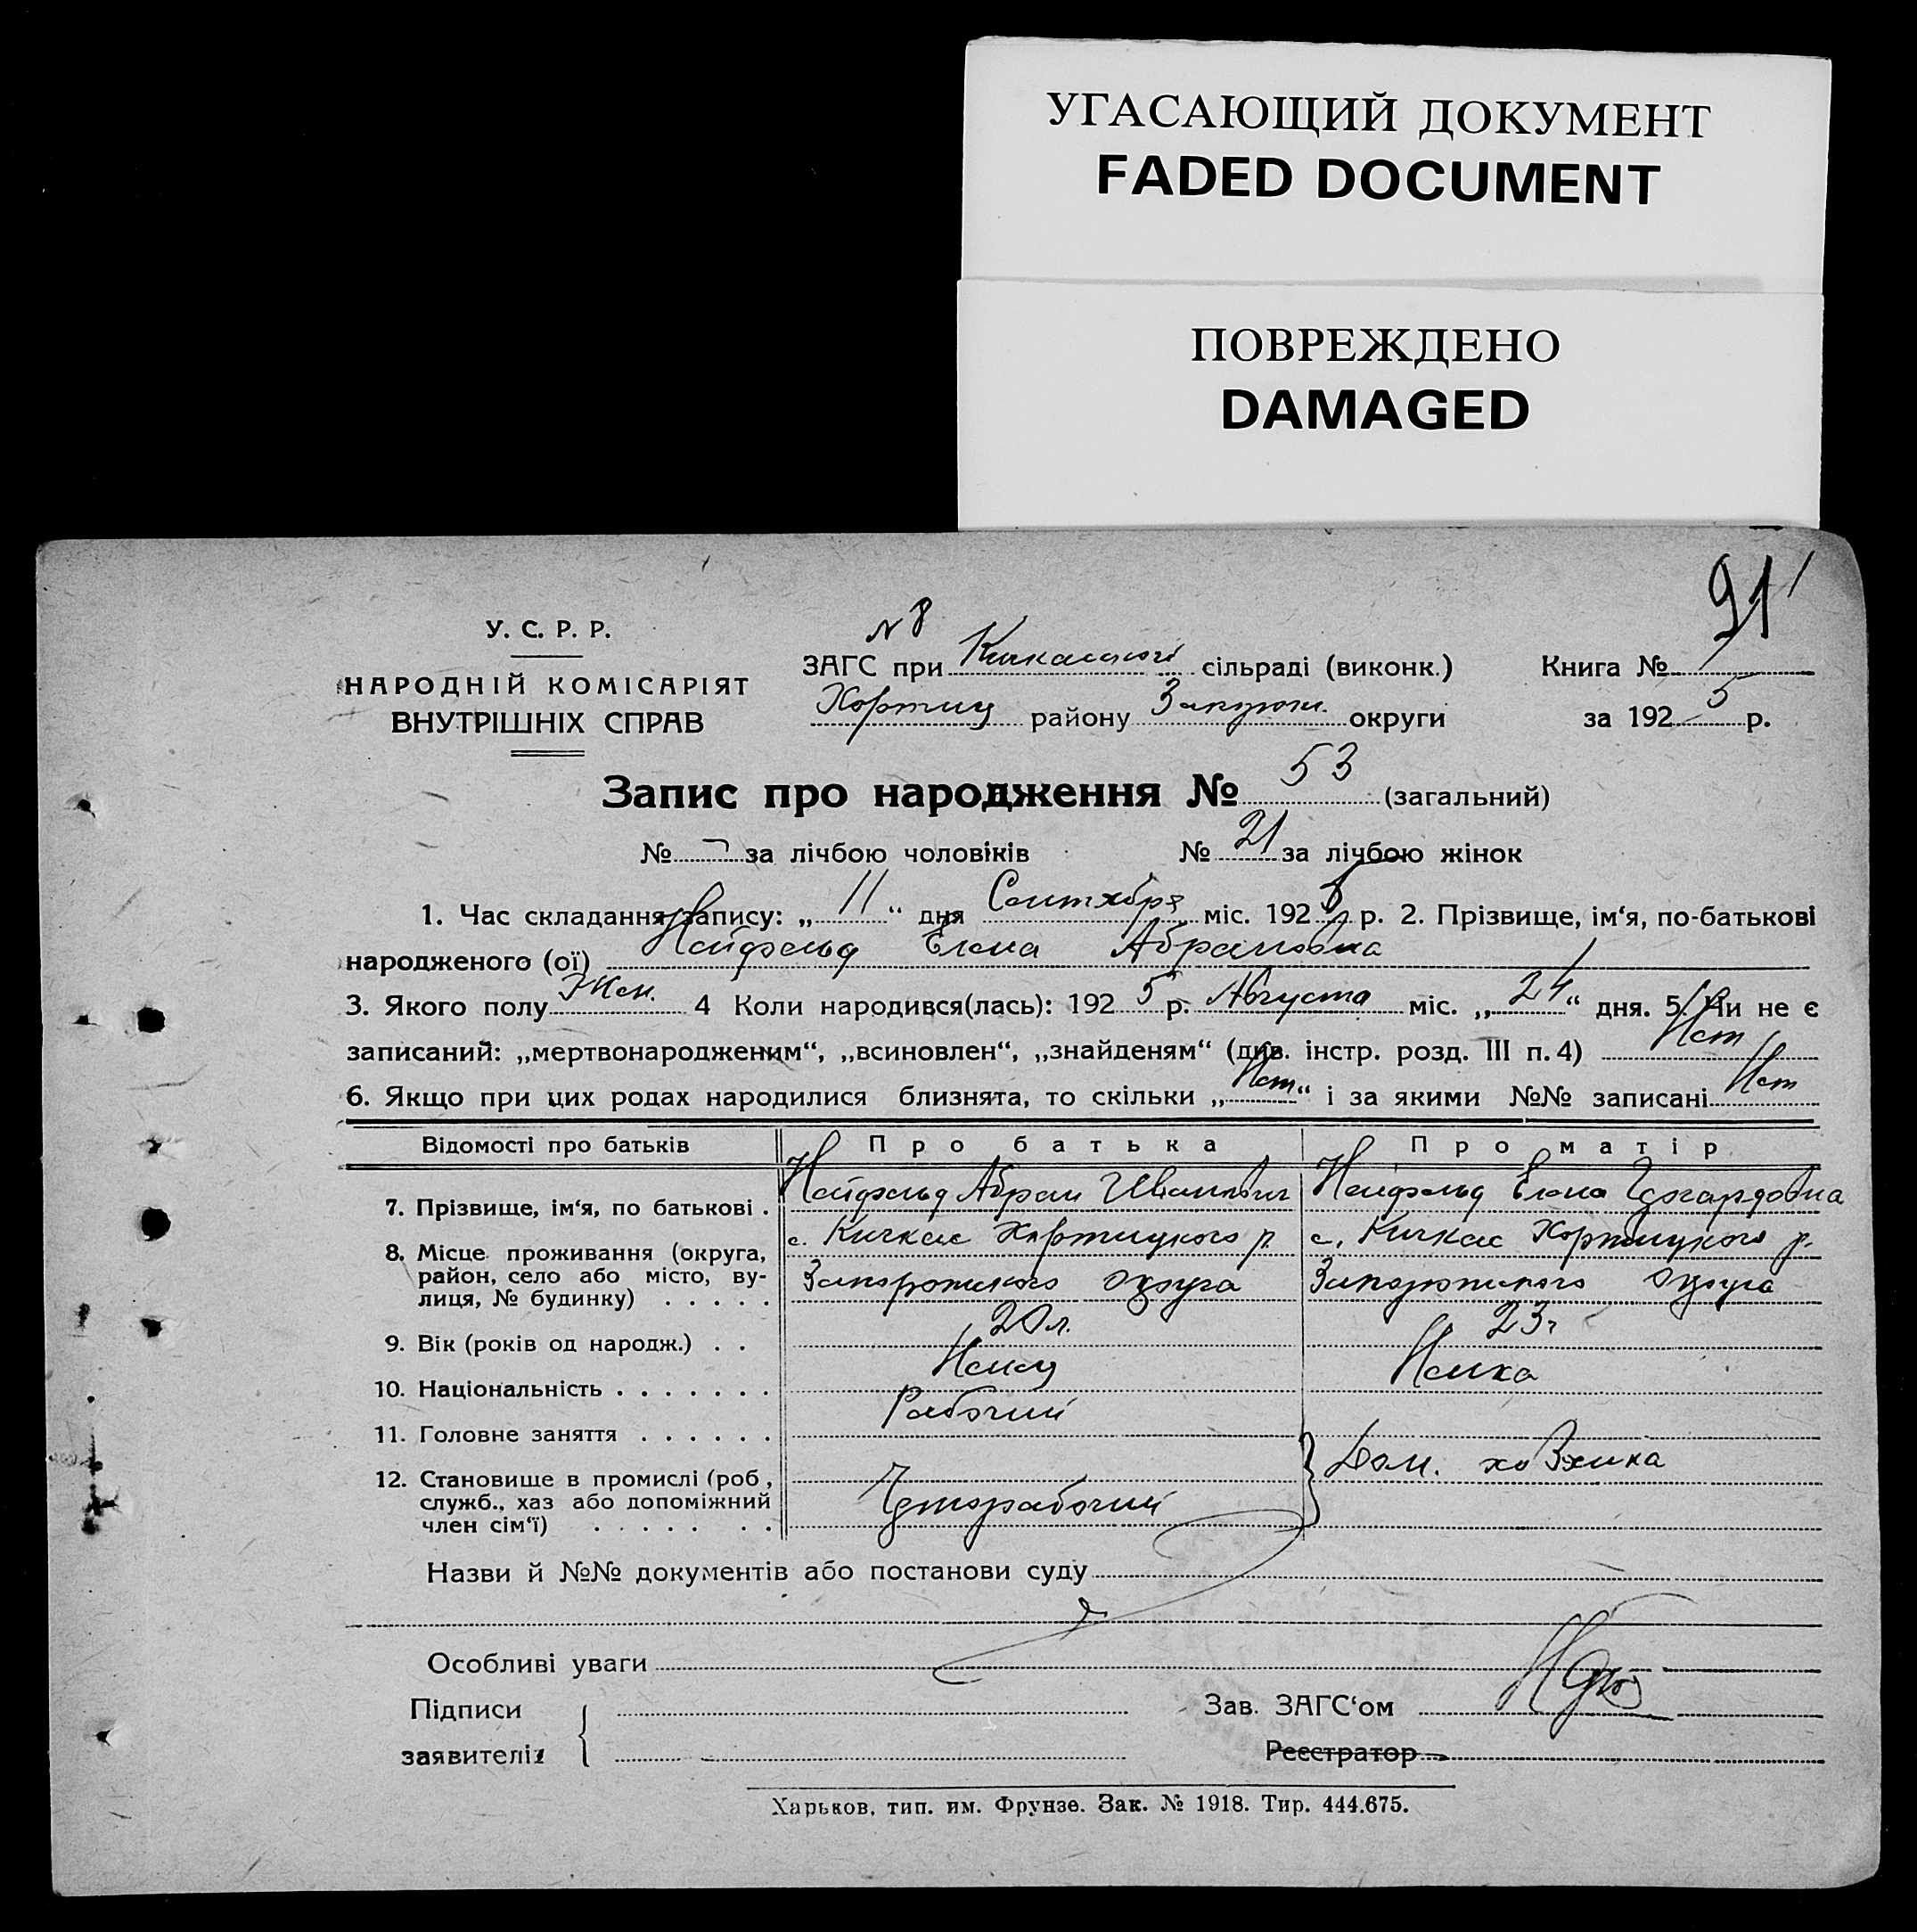 УГАСАЮЩИЙ ДОКУМЕНТ
FADED DOCUMENT
ПОВРЕЖДЕНО
DAMAGED
91
У. С. Р. Р.
НАРОДНІЙ КОМІСАРІЯТ
ВНУТРІШНІХ СПРАВ
N 8
ЗАГС при Кичкасской сільраді (виконк.) Книга №
Хортиц району Запорож. округи за 1925 р.
Запис про народження № 53 (загальний)
№ за лічбою чоловіків № 21 за лічбою жінок
1. Час складання запису: „ 11 “ дня Сентября міс. 1925 р. 2. Прізвище, ім‘я, по-батькові
народженого (ої) Нейфельд Елена Абрамовна
3. Якого полу Жен. 4 Коли народився(лась): 1925 р. Августа міс. „ 24 “ дня. 5. Чи не є
записаний: „мертвонародженим“, „всиновлен“, „знайденям“ (див. інстр. розд. III п. 4) Нет
6. Якщо при цих родах народилися близнята, то скільки „ Нет “ і за якими №№ записані Нет
Відомості про батьків Про батька Про матір
7. Прізвище, ім‘я, по батькові . Нейфельд Абрам Иванович Нейфельд Елена
8. Місце проживання (округа, с. Кичкас Хортицкого р. с. Кичкас Хортицкого р.
район, село або місто, ву- Запорожского округа Запорожского округа
лиця, № будинку) . . . . .
9. Вік (років од народж.) . . 20 л. 23 г
10. Національність . . . . . . . Немец Немка
11. Головне заняття . . . . . . Рабочий Дом. хозяика
12. Становище в промислі (роб., Чернорабочий
служб., хаз або допоміжний
член сім‘ї) . . . . . . .
Назви й №№ документів або постанови суду
Особливі уваги
Підписи Зав. ЗАГС‘ом
заявителів Реєстратор
Харьков, тип. им. Фрунзе. Зак. № 1918. Тир. 444.675.